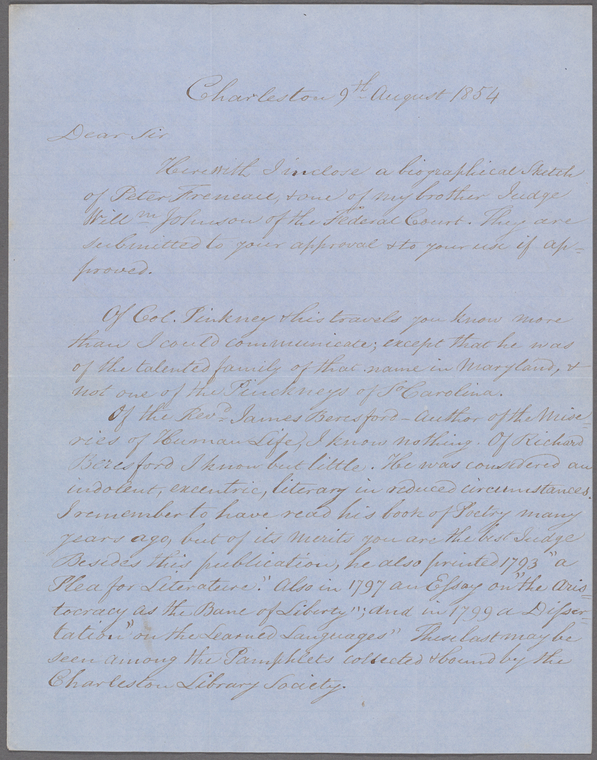 Charleston 9th August 1854
Dear Sir
Herewith I inclose a biographical Sketch
of Peter Freneau, & one of my brother Judge
Willm Johnson of the Federal Court. They are
submitted to your approval & to your use if ap-
proved.
Of Col. Pinkney & his travels you know more
than I could communicate; except that he was
of the talented family of that name in Maryland, &
not one of the Pinckneys of So Carolina.
Of the Revd James Beresford - Author of the Mise-
ries of Human Life, I know nothing. Of Richard
Beresford I know but little. He was considered an
indolent, excentric, literary in reduced circumstances.
I remember to have read his book of Poetry many
years ago, but of its merits you are the best Judge
Besides this publication, he also printed 1793 "a
Plea for Literature". Also in 1797 an Essay on "the Aris-
tocracy as the Bane of Liberty"; and in 1799 a Disser-
tation "on the Learned Languages" These last may be
seen among the Pamphlets collected & bound by the
Charleston Library Society.